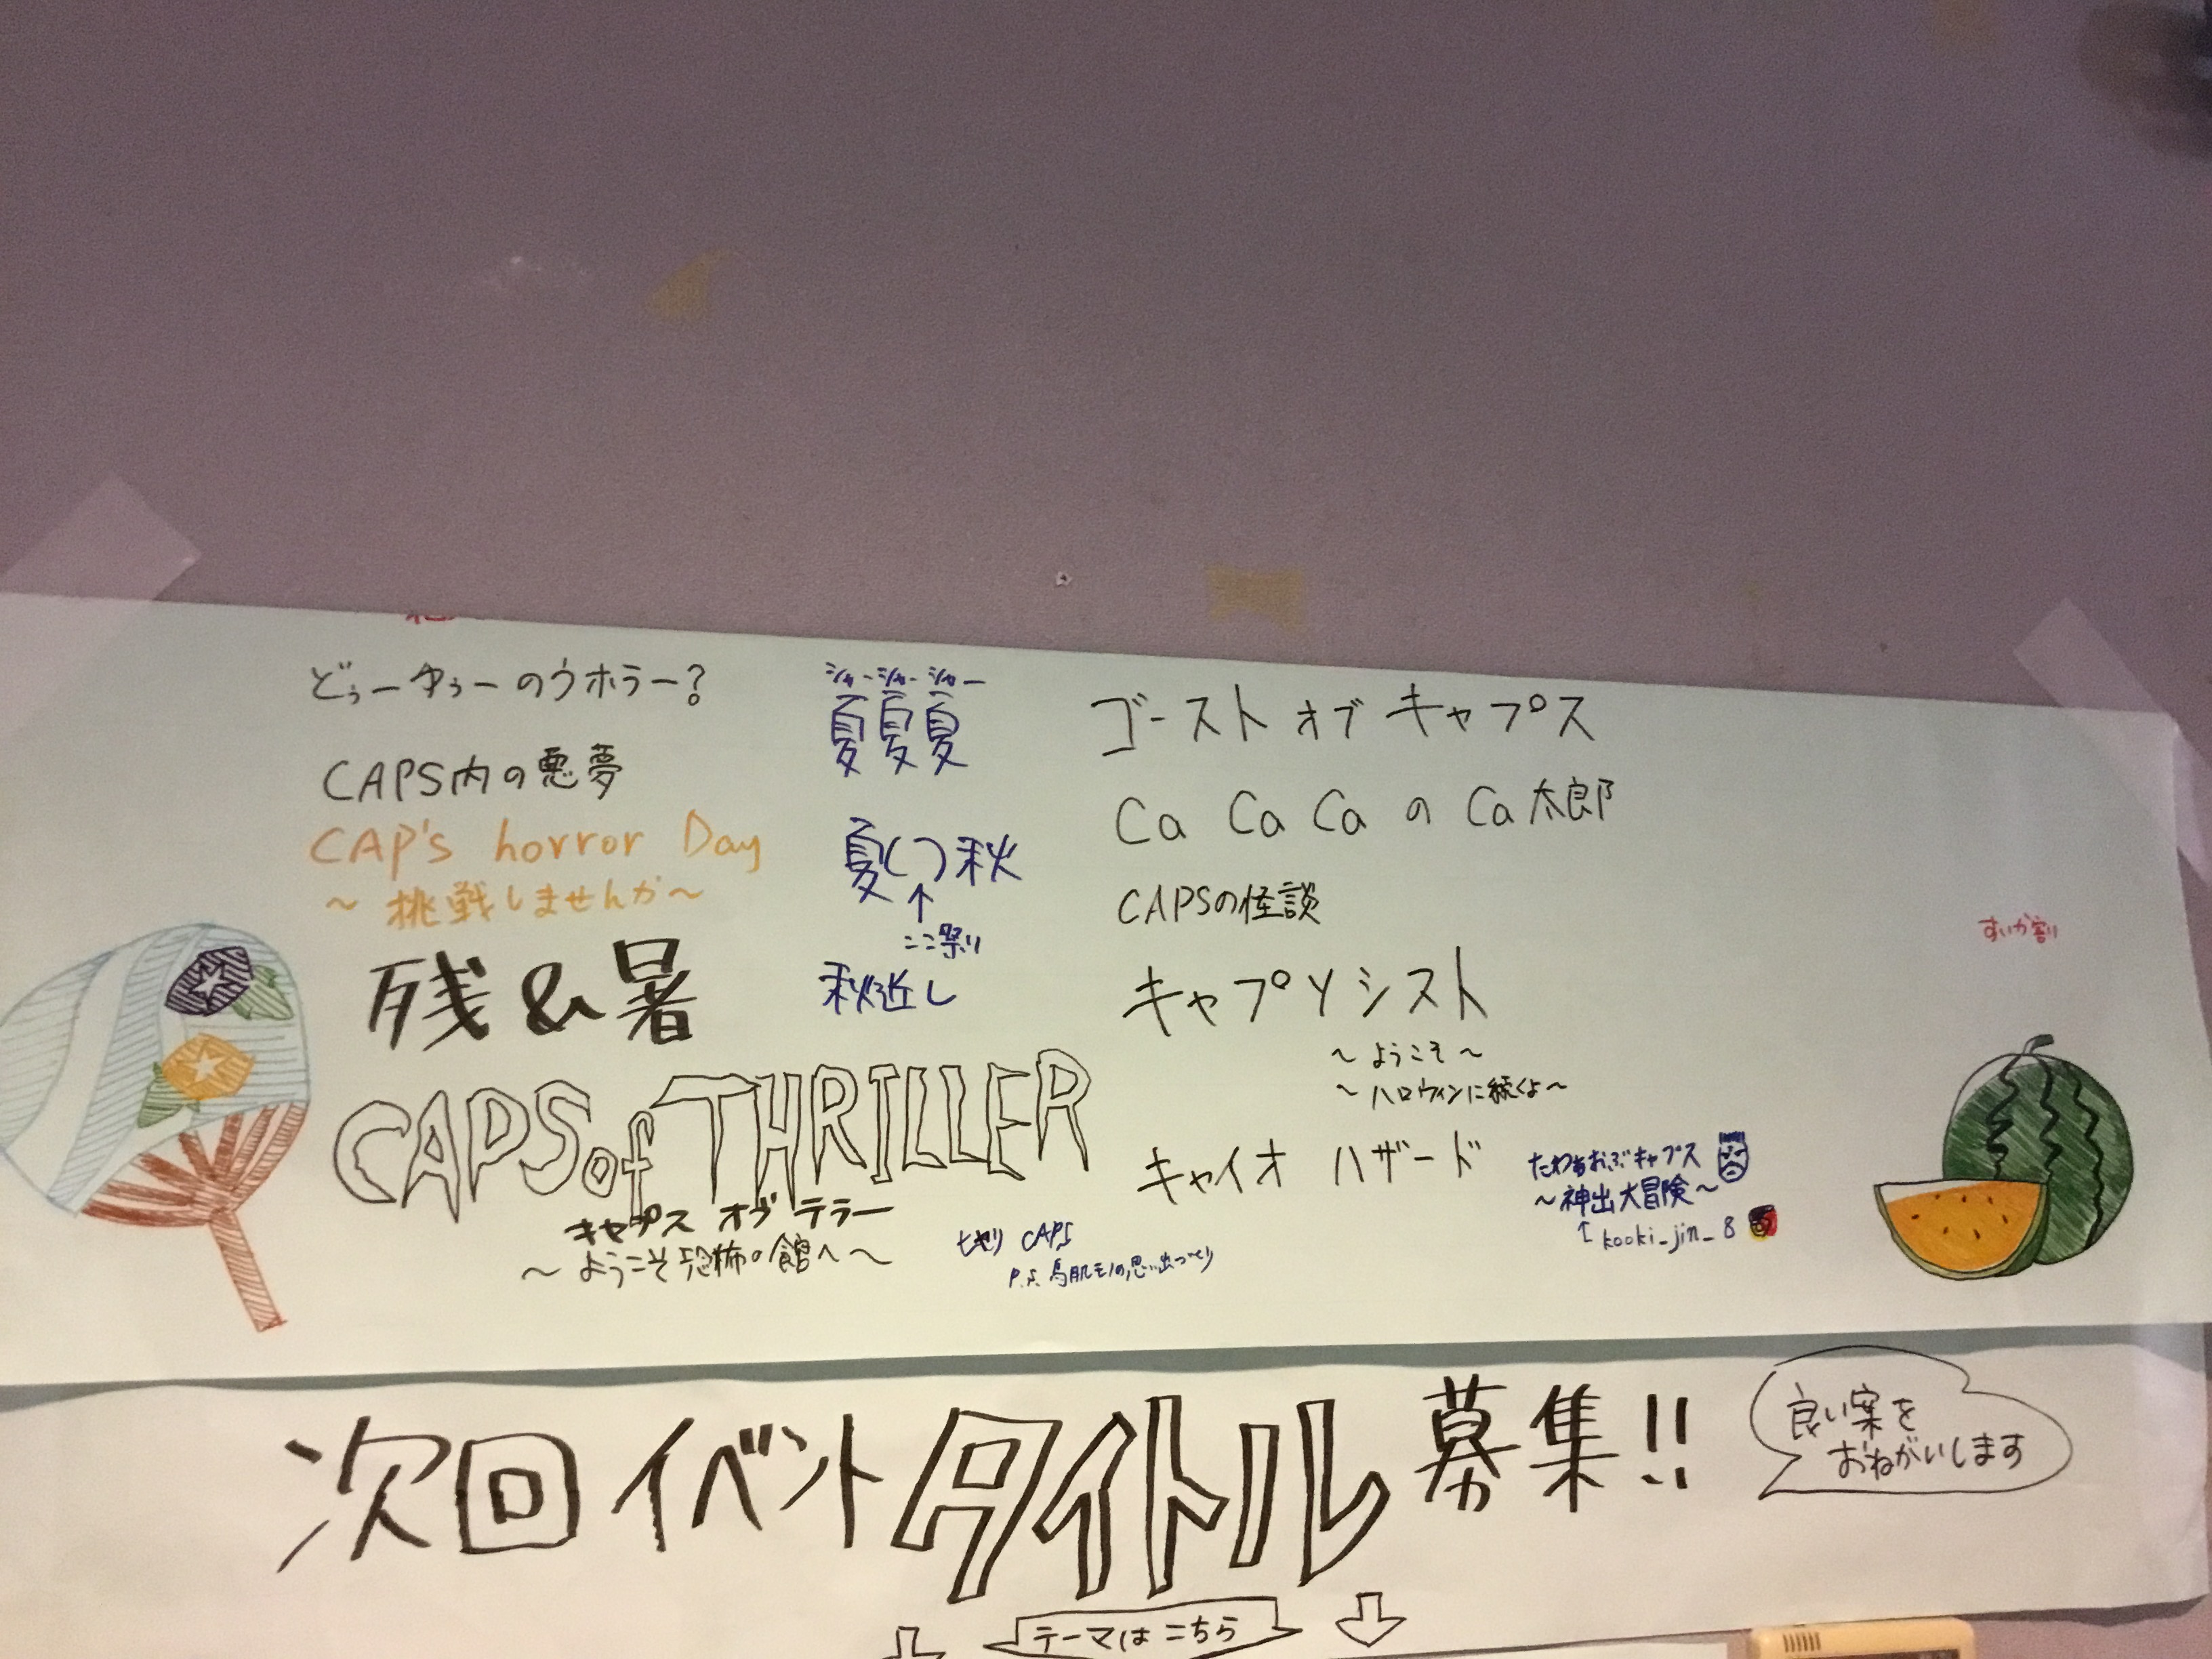 どぅーゆぅーのウホラー?
CAPS内の悪夢
CAP's horror Day
～挑戦しませんか～
残&暑
CAPS of THRILLER
キャプス オブ テラー
～ようこそ恐怖の館へ～
シャーシャーシャー
夏夏夏
夏( )秋
↑
ここ祭り
秋近し
CAPS
P.S. 鳥肌モノの思い出づくり
ゴースト オブ キャプス
Ca Ca Ca の Ca太郎
CAPSの怪談
キャプソシスト
～ようこそ～
～ハロウィンに続くよ～
キャイオ ハザード
たわぁおぶキャプス
～神出大冒険～
↑kooki_jin_8
すいか割り
次回イベントタイトル募集!!
良い案を
おねがいします
テーマはこちら